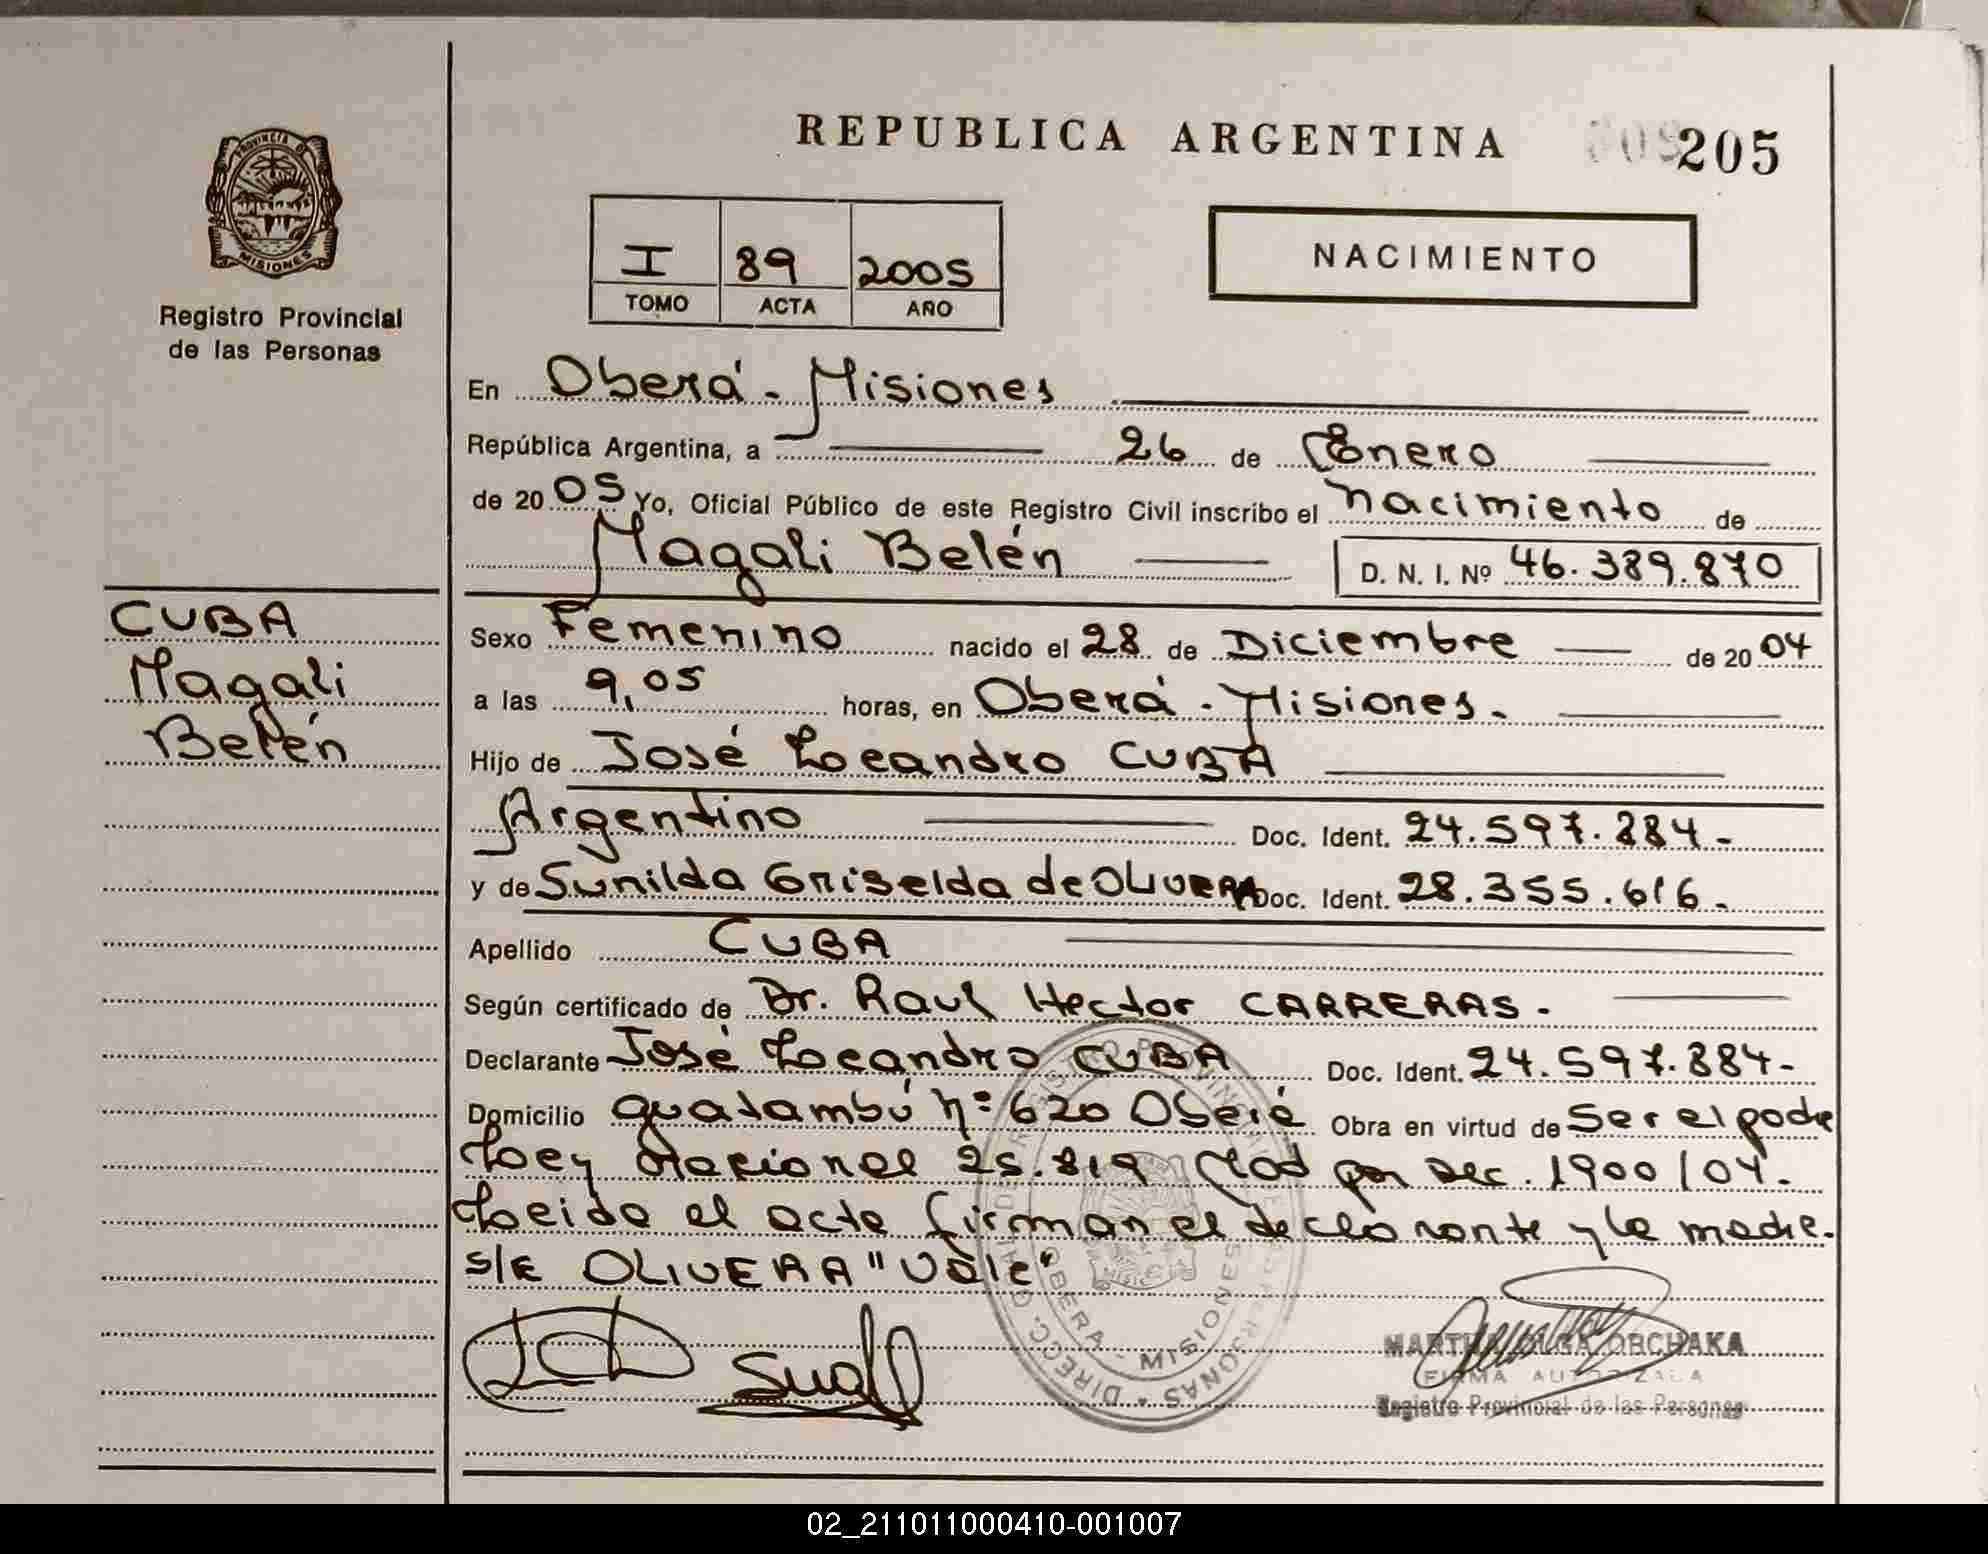 REPUBLICA ARGENTINA
205
PROVINCIA DE
MISIONES
Registro Provincial
de las Personas
I 89 2005
TOMO ACTA AÑO
NACIMIENTO
En Oberá - Misiones
República Argentina, a 26 de Enero
de 2005 Yo, Oficial Público de este Registro Civil inscribo el nacimiento de
Magali Belén D. N. I. Nº 46.389.870
CUBA
Magali
Belén
Sexo Femenino nacido el 28 de Diciembre de 2004
a las 9,05 horas, en Oberá - Misiones.
Hijo de José Leandro CUBA
Argentino Doc. Ident. 24.597.884-
y de Sunilda Griselda de OLIVERA Doc. Ident. 28.355.616-
Apellido CUBA
Según certificado de Dr. Raul Hector CARRERAS.
Declarante José Leandro CUBA Doc. Ident. 24.597.884-
Domicilio Guatambú nº 620 Oberá Obra en virtud de Ser el padre
Ley Nacional 25.819 Mod por Dec. 1900/04.
Leida el acta firman el declarante y la madre.
s/R OLIVERA "Vale"
DIRECC. GRAL. DE REGISTRO PROVINCIAL DE LAS PERSONAS
OBERA - MISIONES
MARTHA OLGA ORCHAKA
FIRMA AUTORIZADA
Registro Provincial de las Personas
02_211011000410-001007